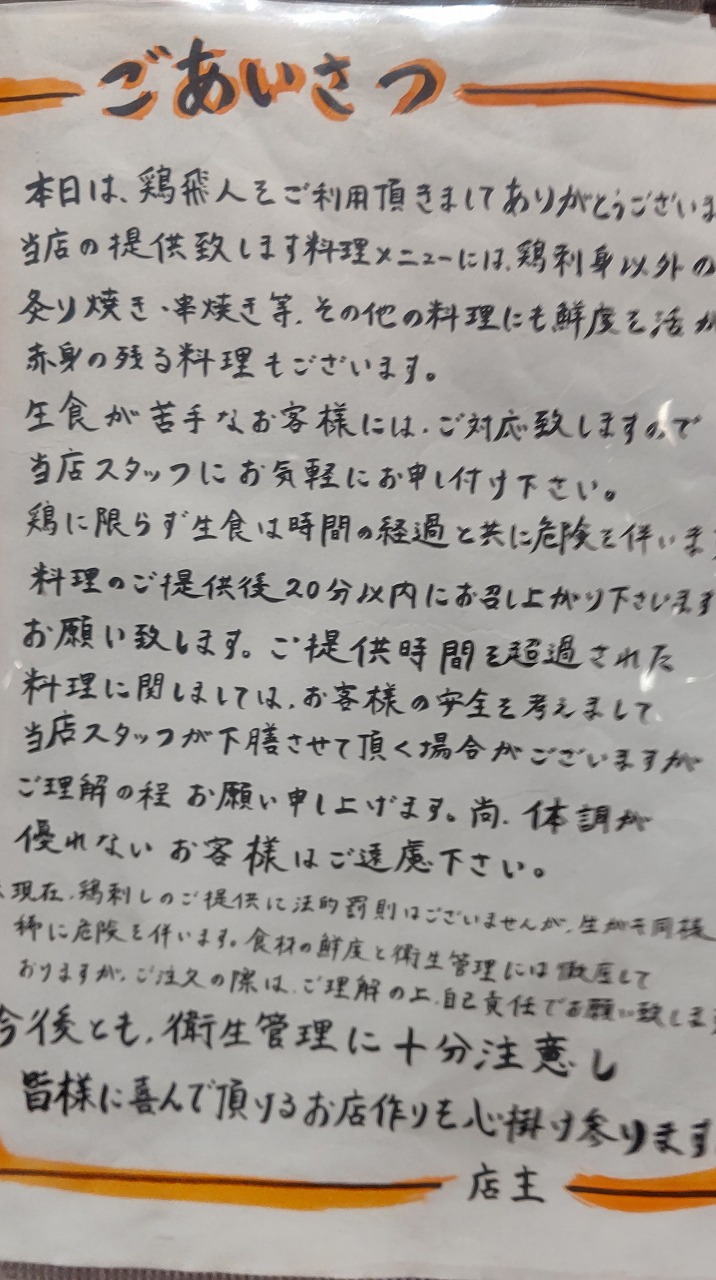 ごあいさつ
本日は、鶏飛人をご利用頂きましてありがとうございま
当店の提供致します料理メニューには、鶏刺身以外の
炙り焼き・串焼き等、その他の料理にも鮮度を活か
赤身の残る料理もございます。
生食が苦手なお客様には、ご対応致しますので
当店スタッフにお気軽にお申し付け下さい。
鶏に限らず生食は時間の経過と共に危険を伴いま
料理のご提供後20分以内にお召し上がり下さいます
お願い致します。ご提供時間を超過された
料理に関しましては、お客様の安全を考えまして
当店スタッフが下膳させて頂く場合がございますが
ご理解の程 お願い申し上げます。尚、体調が
優れない お客様はご遠慮下さい。
現在、鶏刺しのご提供に法的罰則はございませんが、生がき同様
稀に危険を伴います。食材の鮮度と衛生管理には徹底して
おりますが、ご注文の際は、ご理解の上、自己責任でお願い致しま
今後とも、衛生管理に十分注意し
皆様に喜んで頂けるお店作りを心掛け参ります
店主